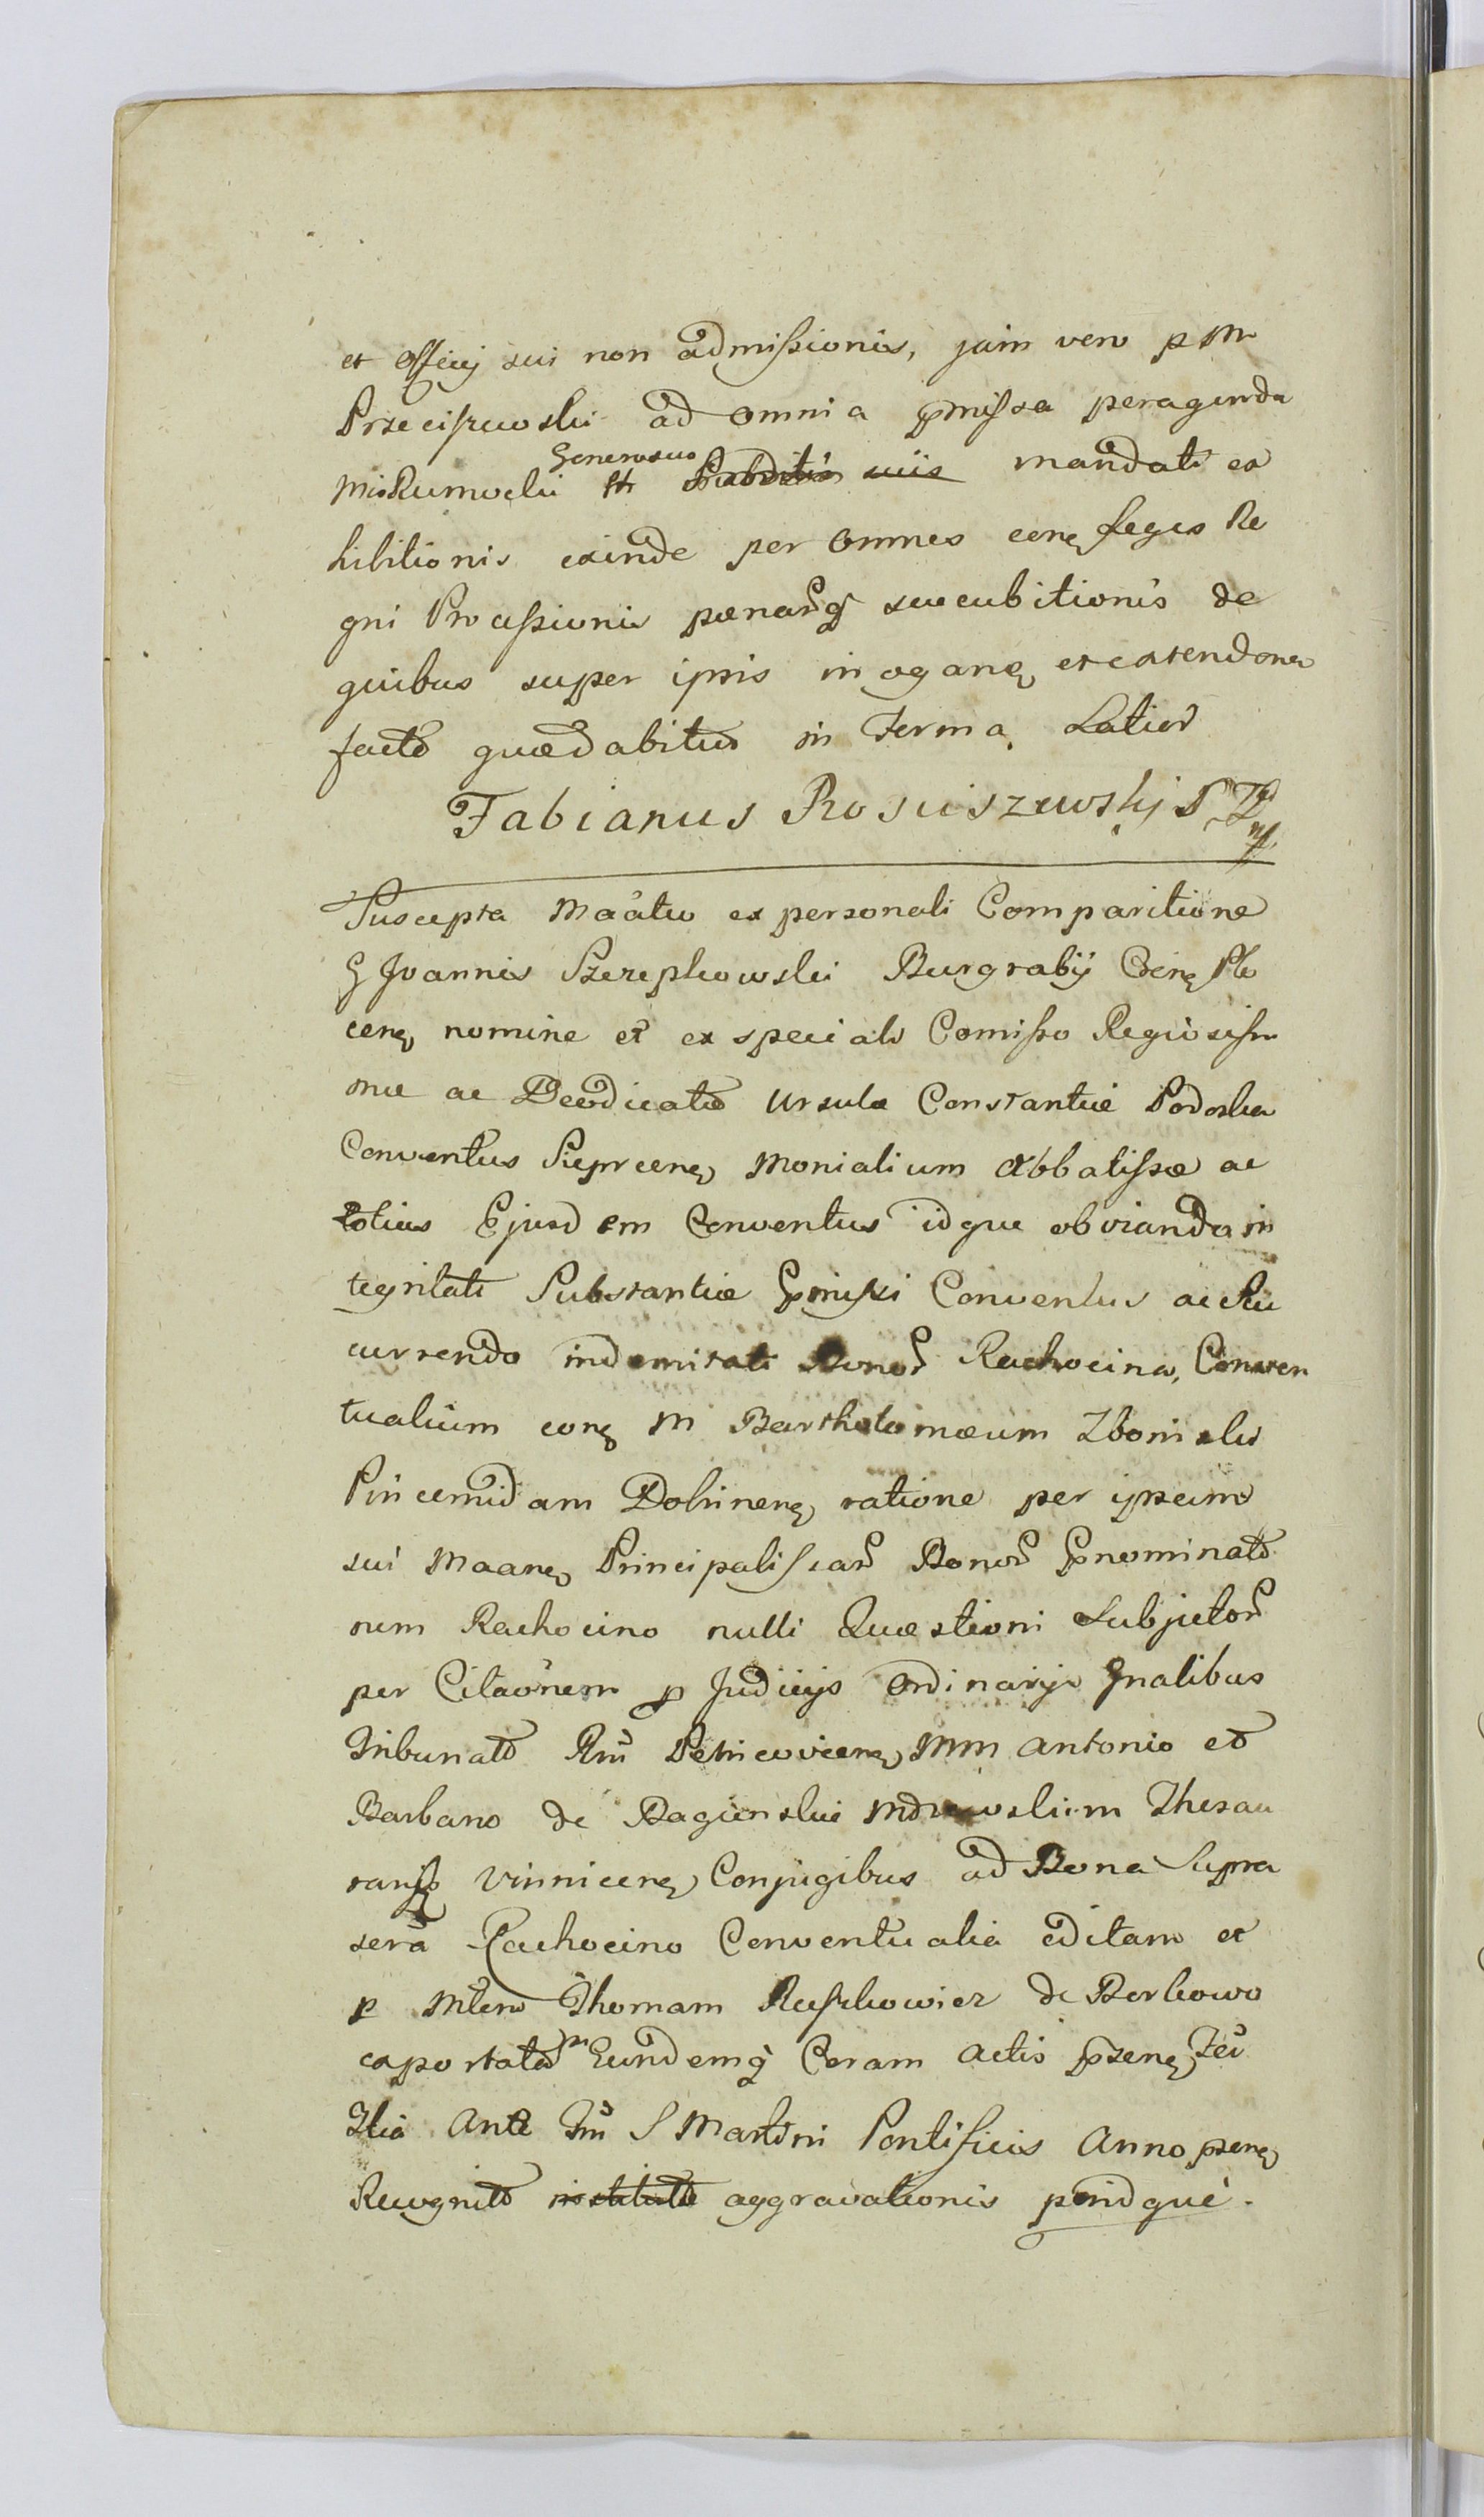 et Officij sui non admissionis, jam vero p M
Przeciszewski ad omnia pmissa peragenda
MisRumoclii Generosus Subditis suis mandati ex
hibitionis exinde per omnes cenę Leges Re
gni Processionis pænarq succubitionis de
quibus super ipsis in oganę et extendone
facto quædabitur in Terma. Latior
Fabianus Rosciszewskj
Suscepta Maãto ex personali Comparitione
G Joannis Szczepkowski Burgrabij Crenę Plo
cenę nomine et ex speciali Comisso Regiosissi
mæ ac Deodicatæ Ursulæ Constantiæ Podoska
Conventus Sieprcenę Monialium Abbatissæ ac
totius Ejusdem Conventus idque obvianda in
tegritati Substantiæ pmissi Conventus ac Su
currendo indemitati Bonor Rachocino, Conven
tualium conę M Bartholomæum Zboinski
Pincernidam Dobrinenę ratione per ipsum
sui Maanę Principalis ear Bonor pnominato
num Rachocino nulli Quæstioni Subjetor
per Citaõnem p Judicijs Ordinarijs Gnalibus
Tribunalt Rni Petricovicenę MM Antonio et
Barbano de Bagienskie Thesau
rarij Vinnicenę Conjugibus ad Bona Supra
sera Rachocino Conventualia editam et
p Mlem Thomam Ruszkowicz de Borkowo
caportatam Eundemq Coram Actis pzenę
Ante S Martini Pontificis Anno pzenę
Recognito institutæ aggravationis pnidque.